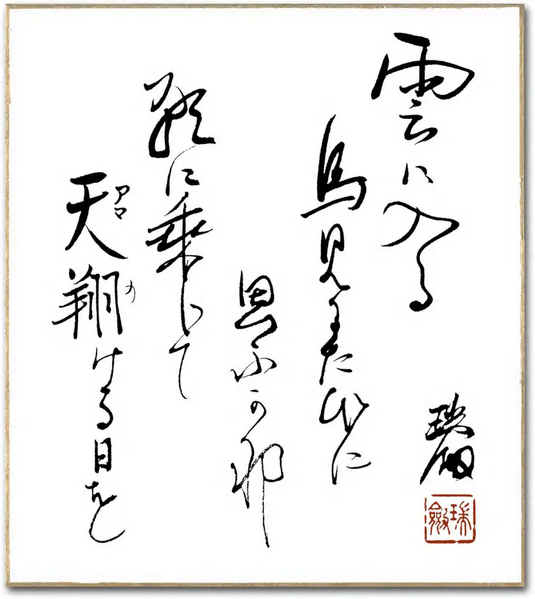 雲に入る
鳥見るたひに
思ふ可那
に乗りて
天翔ける日を
アマ
か